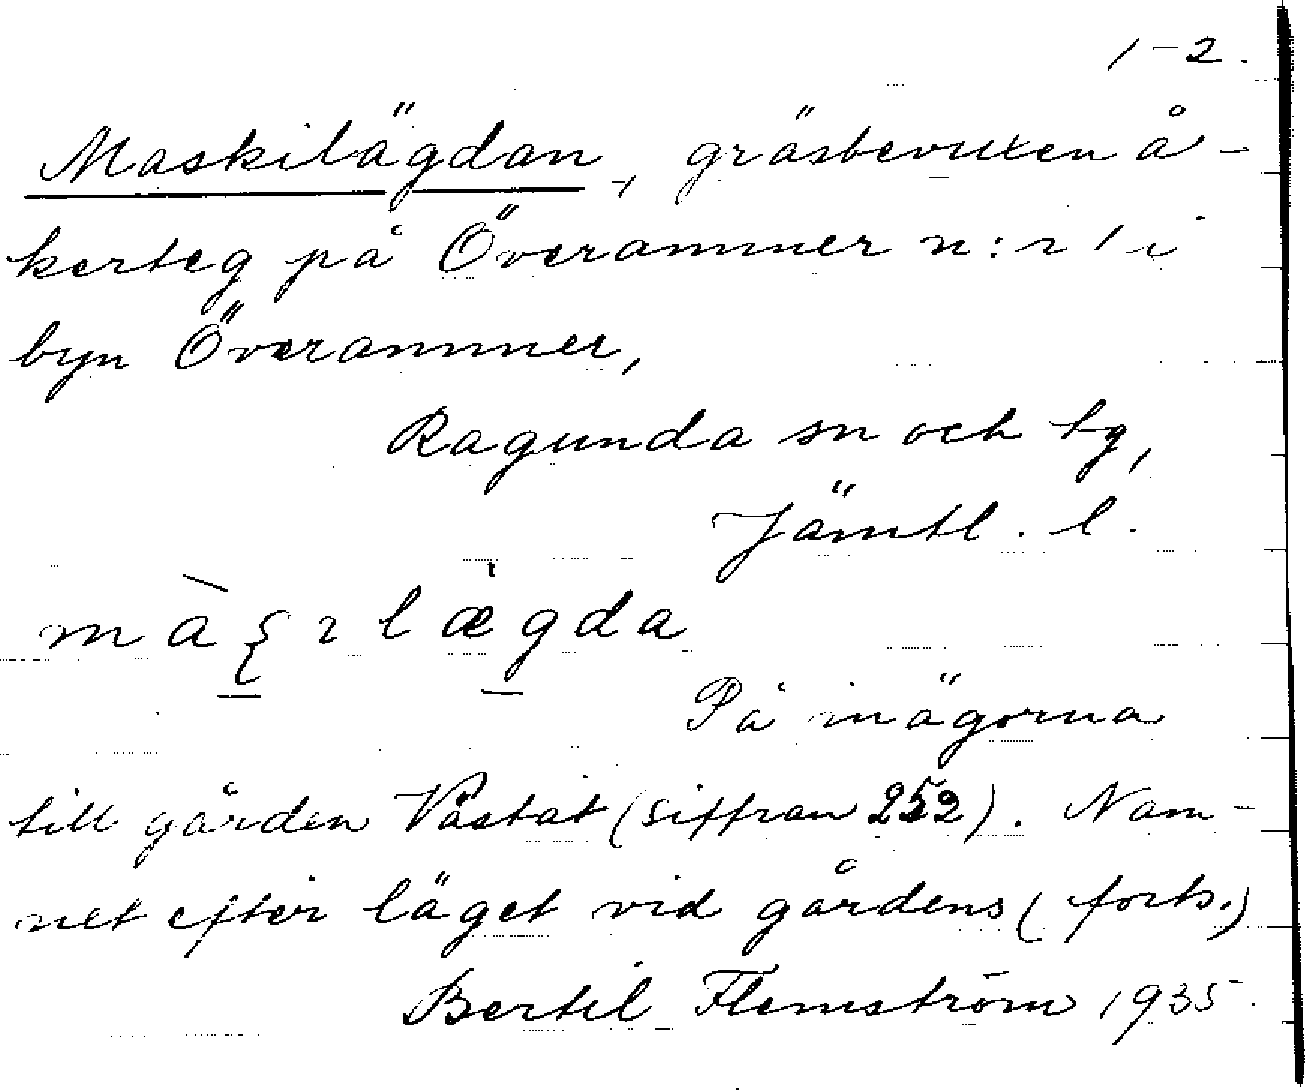 1-2.
Maskilägdan, gräsbevuxen å-
kerteg på Överammer n:r 1 i
byn Överammer,
Ragunda sn och tg,
Jämtl. l.
lægda
På inägorna
till gården Västat (siffran 252). Nam-
net efter läget vid gårdens (forts.)
Bertil Flemström 1935.